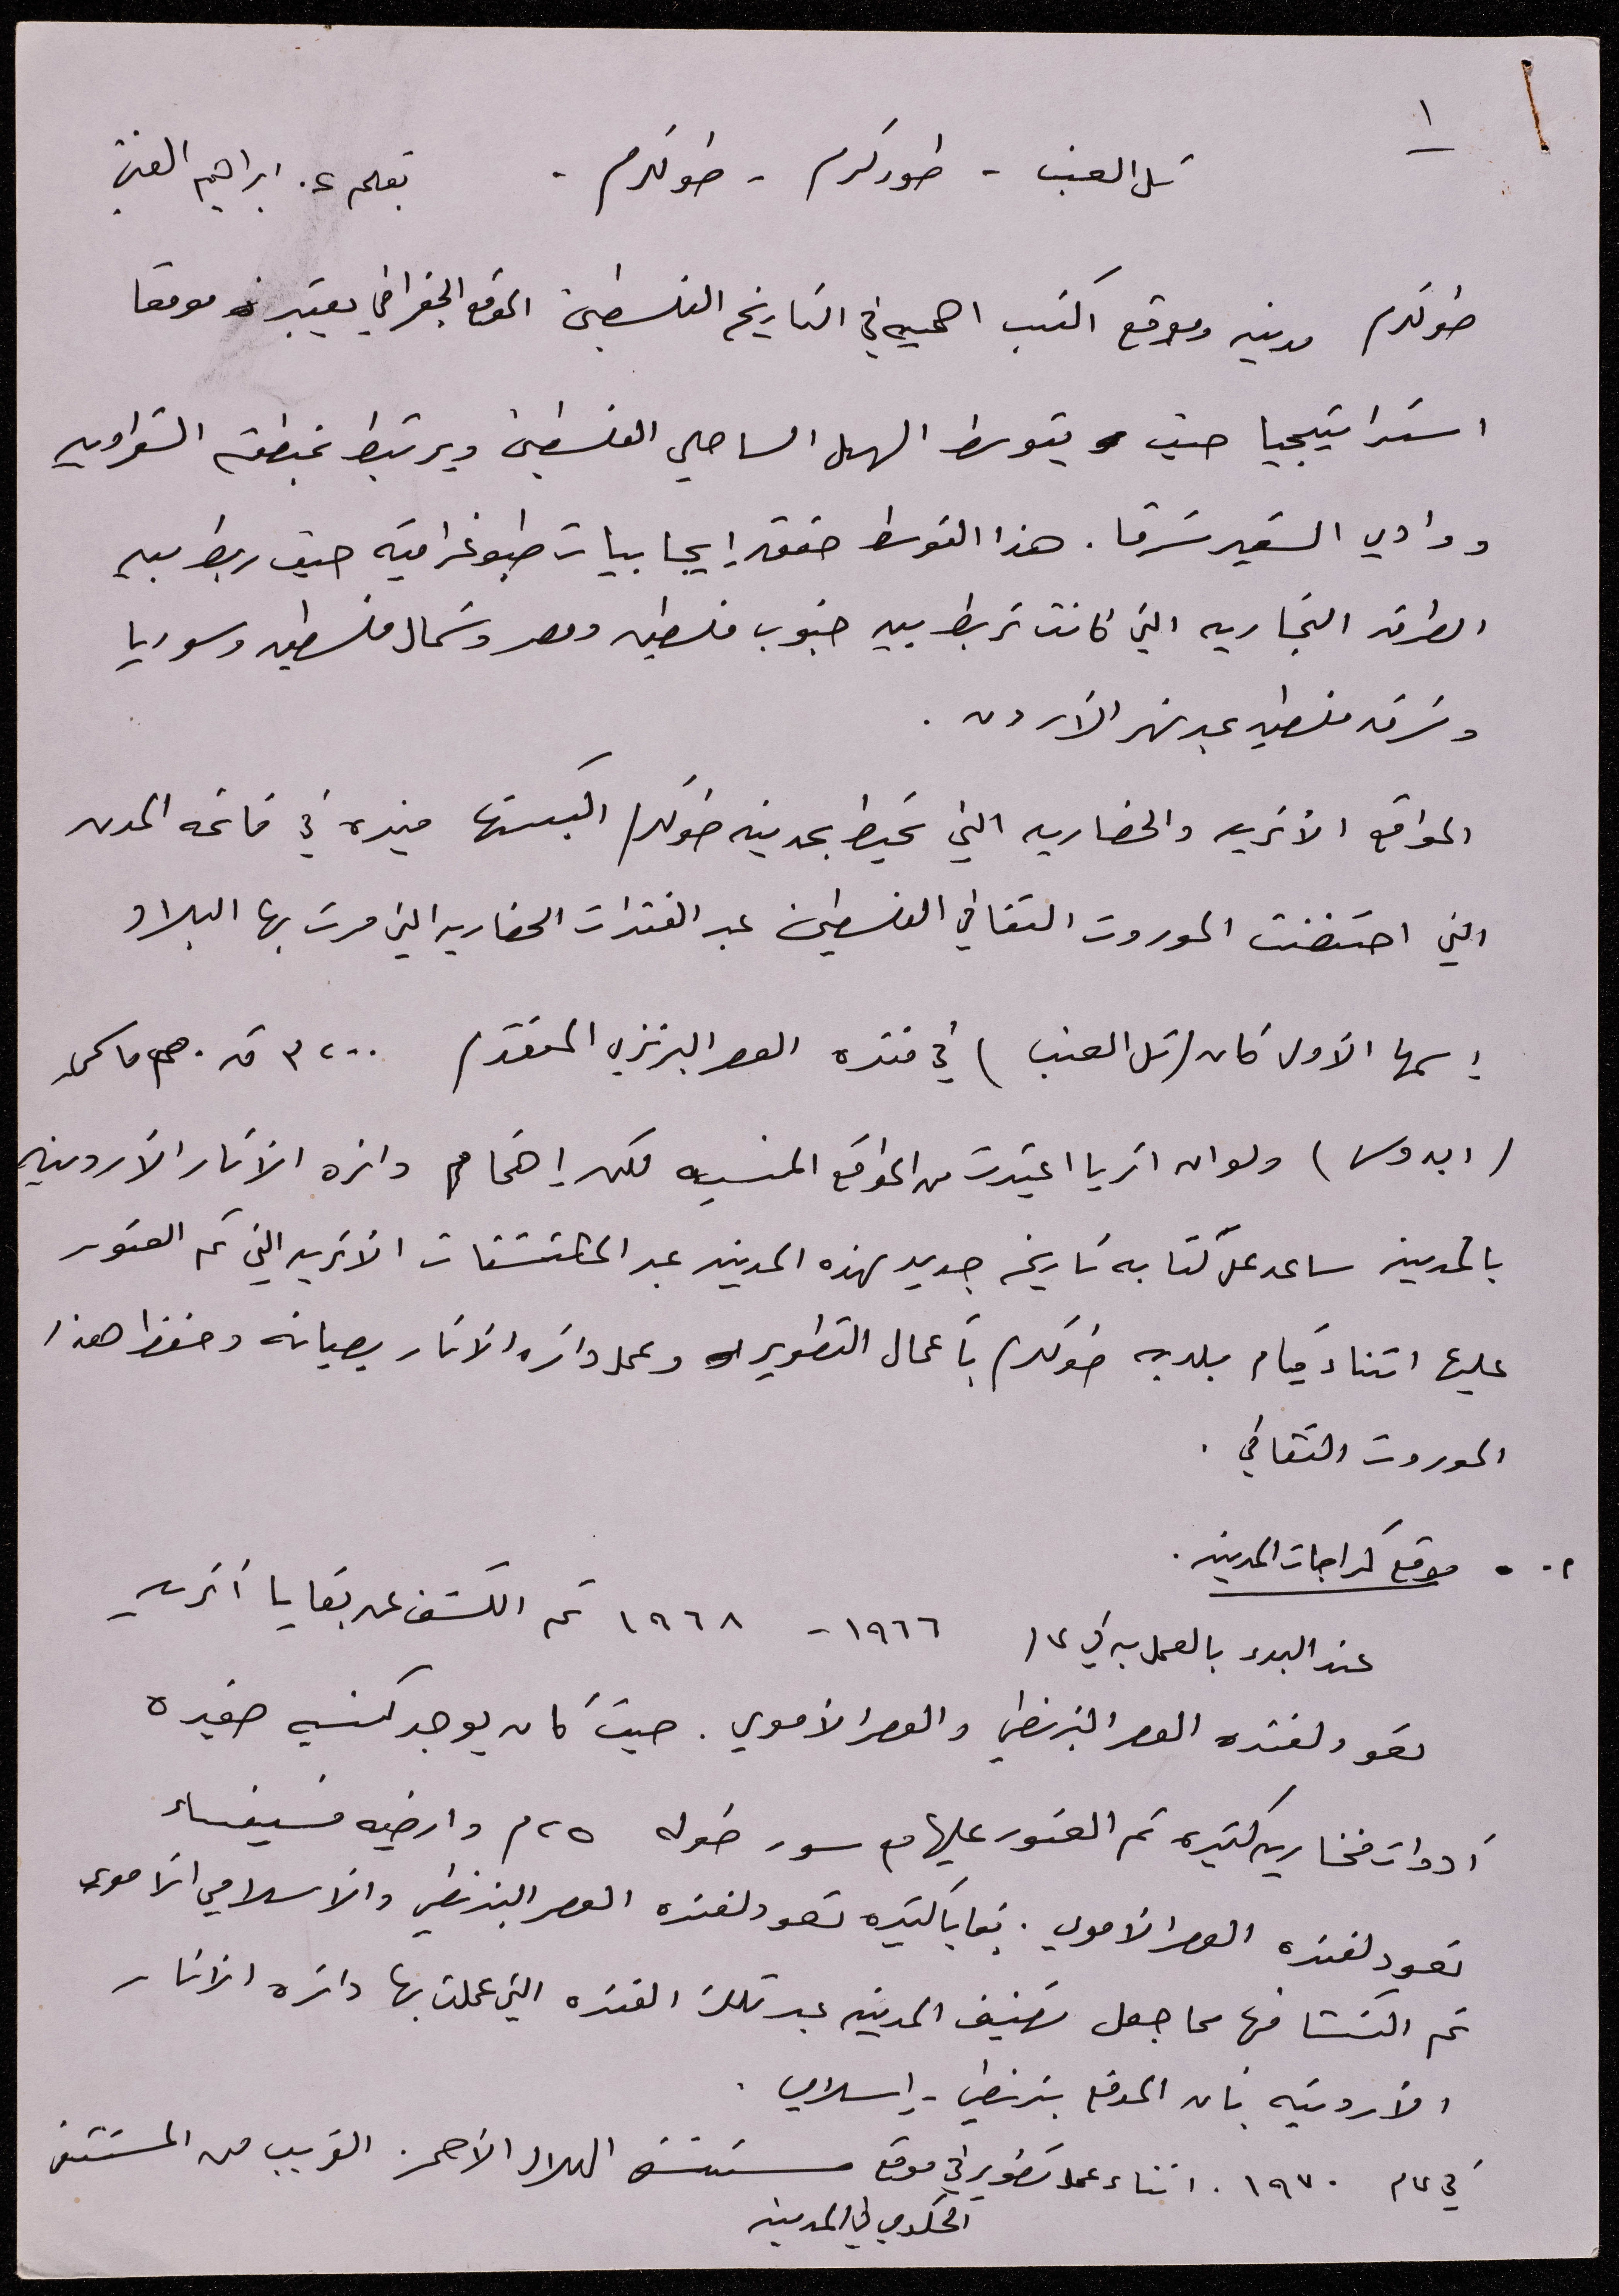 ١
تل العنب - طور كرم - طولكرم . بقلم د. ابراهيم الفني
طولكرم مدينه وموقع اكتسب اهميه في التاريخ الفلسطيني الموقع الجغرافي يعتبر موقعا
استراتيجيا حيث يتوسط السهل الساحلي الفلسطيني ويرتبط بمنطقة الشعراويه
ووادي الشعير شرقا . هذا التوسط حقق إيجابيات طبوغرافية حيث ربط بين
الطرق التجاريه التي كانت تربط بين جنوب فلسطين ومصر وشمال فلسطين وسوريا
وشرق فلسطين عبر نهر الأردن .
المواقع الأثريه والحضاريه التي تحيط بمدينه طولكرم اكسبتها ميزه في قائمه المدن
التي احتضنت الموروث الثقافي الفلسطيني عبر الفترات الحضاريه التي مرت بها البلاد
إسمها الأول كان (تل العنب) في فتره العصر البرنزي المتقدم ٣٢٠٠ ق.م
( ابدوس ) ولو ان اثريا اعتبرت من المواقع المنسيه لكن إهتمام دائره الأثار الأردنيه
بالمدينه ساعد على كتابه تاريخ جديد لهذه المدينه عبر المكتشفات الأثريه التي تم العثور
عليها اثناء قيام بلديه طولكرم بأعمال التطوير وعمل دائره الأثار بصيانه وحفظ هذا
الموروث الثقافي .
٠١ موقع كراجات المدينه .
عند البدء بالعمل به في عام ١٩٦٦ - ١٩٦٨ تم الكشف عن بقايا أثريه
تعود لفتره العصر البزنطي والعصر الأموي . حيث كان يوجد كنسيه صغيره
أدوات فخاريه كثيره تم العثور عليها مع سور طوله ٢٥م وارضيه فسيفساء
تعود لفتره العصر الأموي . بقايا كثيره تعود لفتره العصر البزنطي والأسلامي الأموي
تم اكتشافها مما جعل تصنيف المدينه عبر تلك الفتره التي عملت بها دائره الأثار
الأردنيه بأن الموقع بزنطي - إسلامي .
في عام ١٩٧٠ . اثناء عمل تطوير في موقع مستشفى الهلال الأحمر . القريب من المستشفى
الحكومي في المدينه